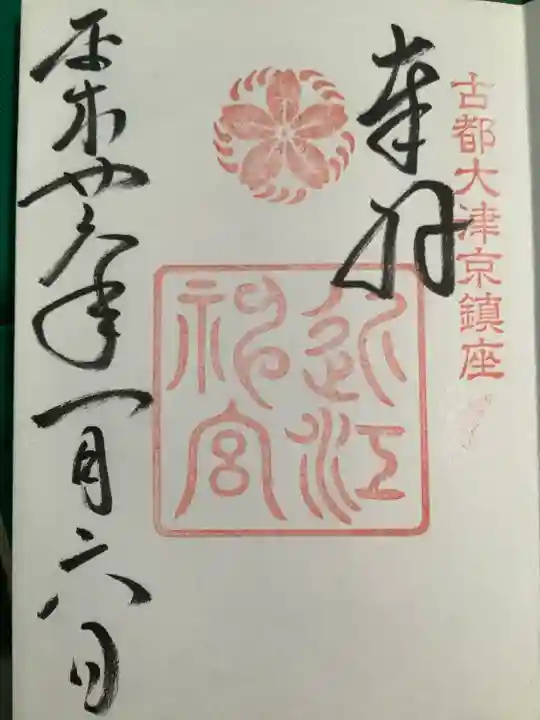 古都大津京鎮座
奉拝
近江
神宮
平成廿八年一月六日